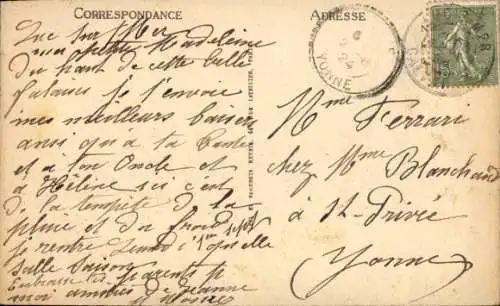 CORRESPONDANCE
ADRESSE
Luc sur Mer
ma petite Madeleine
Du haut de cette belle
falaise je t'envoie
mes meilleurs baisers
ainsi qu'à ta Tante
et à ton Oncle et
à Hélène ici c'est
de la tempête de la
pluie et du froid
je rentre Lundi 1er Sept
quelle
salle saison
Embrasse tes parents pr
moi amitiés de Jeanne
YONNE
Mme Ferrari
chez Mme Blanchard
à St-Privé
Yonne